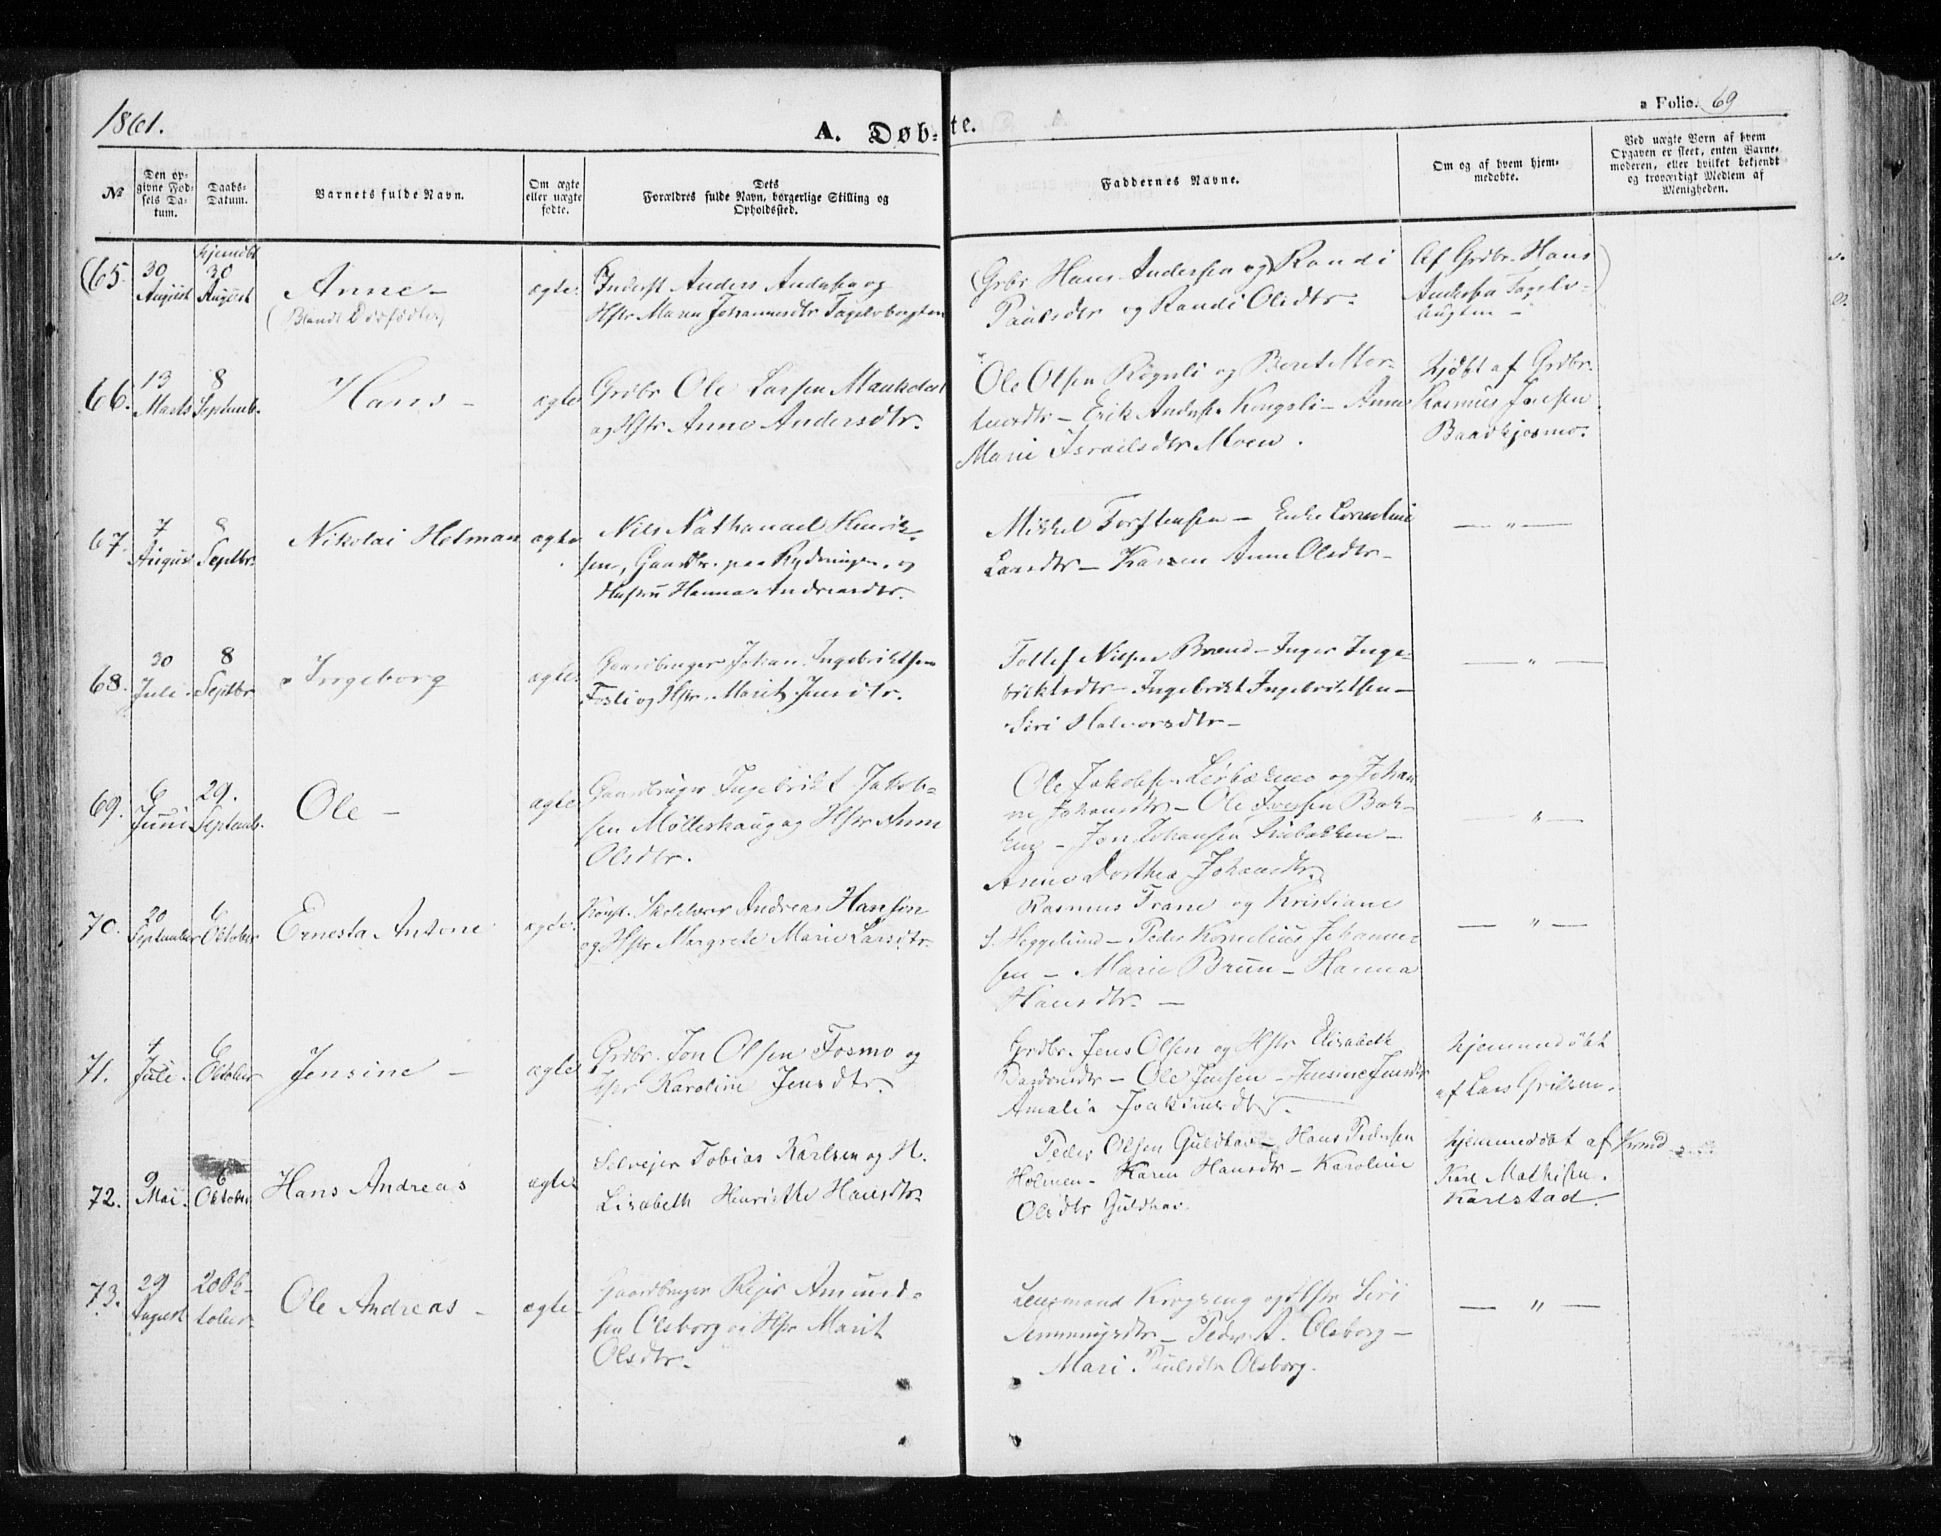 1861.
A. Døb-
te.
a Folio. 69
№
Den op-
givne Fød-
sels Da-
tum.
Daabs-
Datum.
Barnets fulde Navn.
Om ægte
eller uægte
fødte.
Dets
Forældres fulde Navn, borgerlige Stilling og
Opholdssted.
Faddernes Navne.
Om og af hvem hjem-
medøbte.
Ved uægte Børn af hvem
Opgaven er skeet, enten Barne-
moderen, eller hvilket bekjendt
og troværdigt Medlem af
Menigheden.
(65.
30
August
hjemdbt
30
August
Anne –
(Blandt Dødfødte)
ægte.
Inderst Anders Andersen og
Hstr Maren Johannesdtr
(Grbr Hans Andersen og) Randi
Paulsdtr og Randi Olsdtr.
Af Grdbr. Hans
Andersen Fagelv-
66.
13
Marts
8
Septemb.
Hans –
ægte
Grdbr Ole Larsen
og Hstr Anne Andersdtr.
Ole Olsen Rognli og Berit Mor-
tensdtr – Erik Anders. Kongsli – Anne
Marie Israelsdtr Moen.
hjdbt af Grdbr.
Rasmus Jensen
67.
7
August
8
Septbr.
Nikolai Hetman
ægte
Nils Nathanael Henrik-
sen, Gaardbr. paa Rydningen og
Hustru Hanna Andreasdtr.
Mikkel Torstensen – Enke
Larsdtr – Karen Anne Olsdtr –
— " —
68.
30
Juli
8
Septbr
Ingeborg
ægte
Gaardbruger Johan Ingebriktsen
Fosli og Hstr. Marit Jensdtr.
Tollef Nilsen Brand – Inger Inge-
briktsdtr – Ingebrikt Ingebriktsen –
Siri Halvorsdtr –
— " —
69.
6
Juni
29.
Septemb.
Ole –
ægte
Gaardbruger Ingebrikt Jakob-
sen Mølleshaug og Hstr Anne
Olsdtr.
Ole Jakobsen og Johan-
ne Johansdtr – Ole Iversen Bak-
ken – Jon Johansen –
Anne Dorthea Johansdtr.
— " —
70.
20
September
6
Oktober
Ernesta Antone
ægte
Konst. Skolelærer Andreas Hansen
og Hstr Margrete Marie Larsdtr.
Rasmus Trane og Kristiane
S. Heggelund – Peder Kornelius Johanne-
sen – Marie Bruun – Hanna
Hansdtr. –
— " —
71.
4
Juli.
6
Oktober
Jensine –
ægte
Grdbr. Jon Olsen Fosmo og
Hstr Karoline Jensdtr.
Grdbr. Jens Olsen og Hstr Elisabeth
Bardonsdtr – Ole Jensen – Jensine Jensdtr
Amalia Joakimsdtr.
hjemmedøbt
af Lars
72.
9
Mai.
6
Oktober
Hans Andreas
ægte
Selvejer Tobias Karlsen og H.
Lisabeth Henriette Hansdtr.
Peder Olsen Guldhav – Hans Pedersen
Holmen – Karen Hansdtr – Karoline
Olsdtr Guldhav.
hjemmedøbt af
Karl Mathisen
Karlstad.
73.
29
August
20 Ok-
tober
Ole Andreas –
ægte –
Gaardbruger Rejer Amund-
sen Olsborg og Hstr Marit
Olsdtr.
Lensmand Krogseng og Hstr Siri
Semmingsdtr – Peder A. Olsborg –
Mari Paulsdtr Olsborg.
— " —